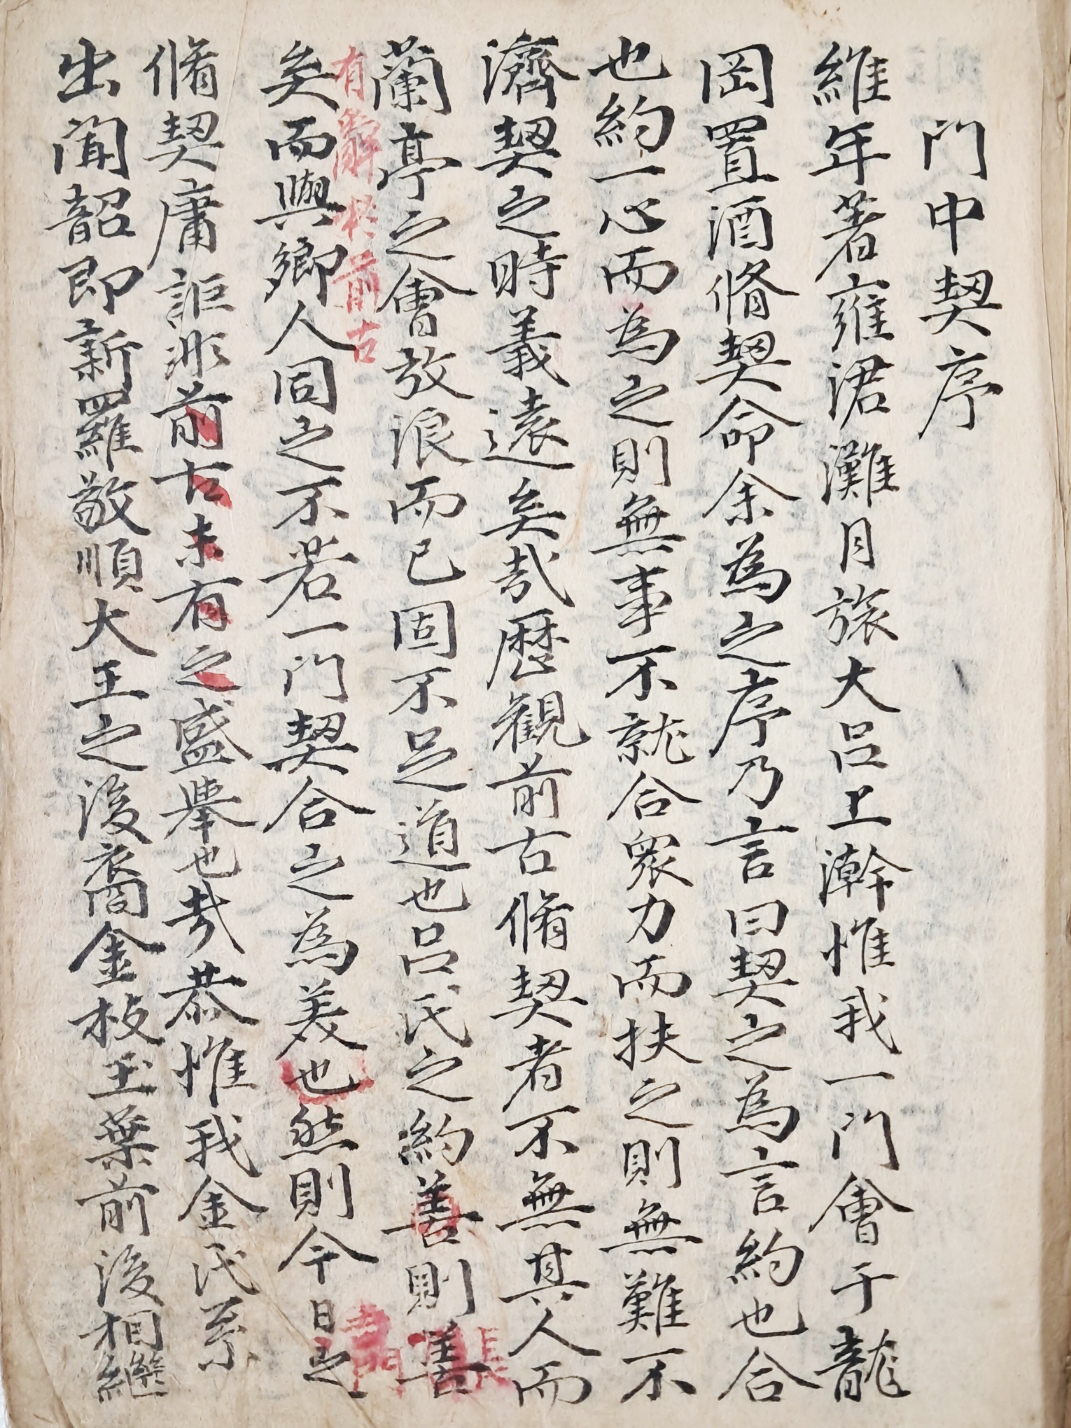 門中契序
維年著雍涒灘月旅大呂上澣惟我一門會于龍
岡置酒脩契命余為之序乃言曰契之為言約也合
也約一心而為之則無事不就合衆力而扶之則無難不
濟契之時義遠矣哉歷觀前古脩契者不無其人而
蘭亭之會放浪而已固不足道也呂氏之約善則善
有辭於前古
矣而與鄉人同之不若一門契合之為美也然則今日之
脩契庸詎非前古未有之盛擧也哉恭惟我金氏系
出闻韶即新羅敬順大王之後裔金枝玉葉前後相繼